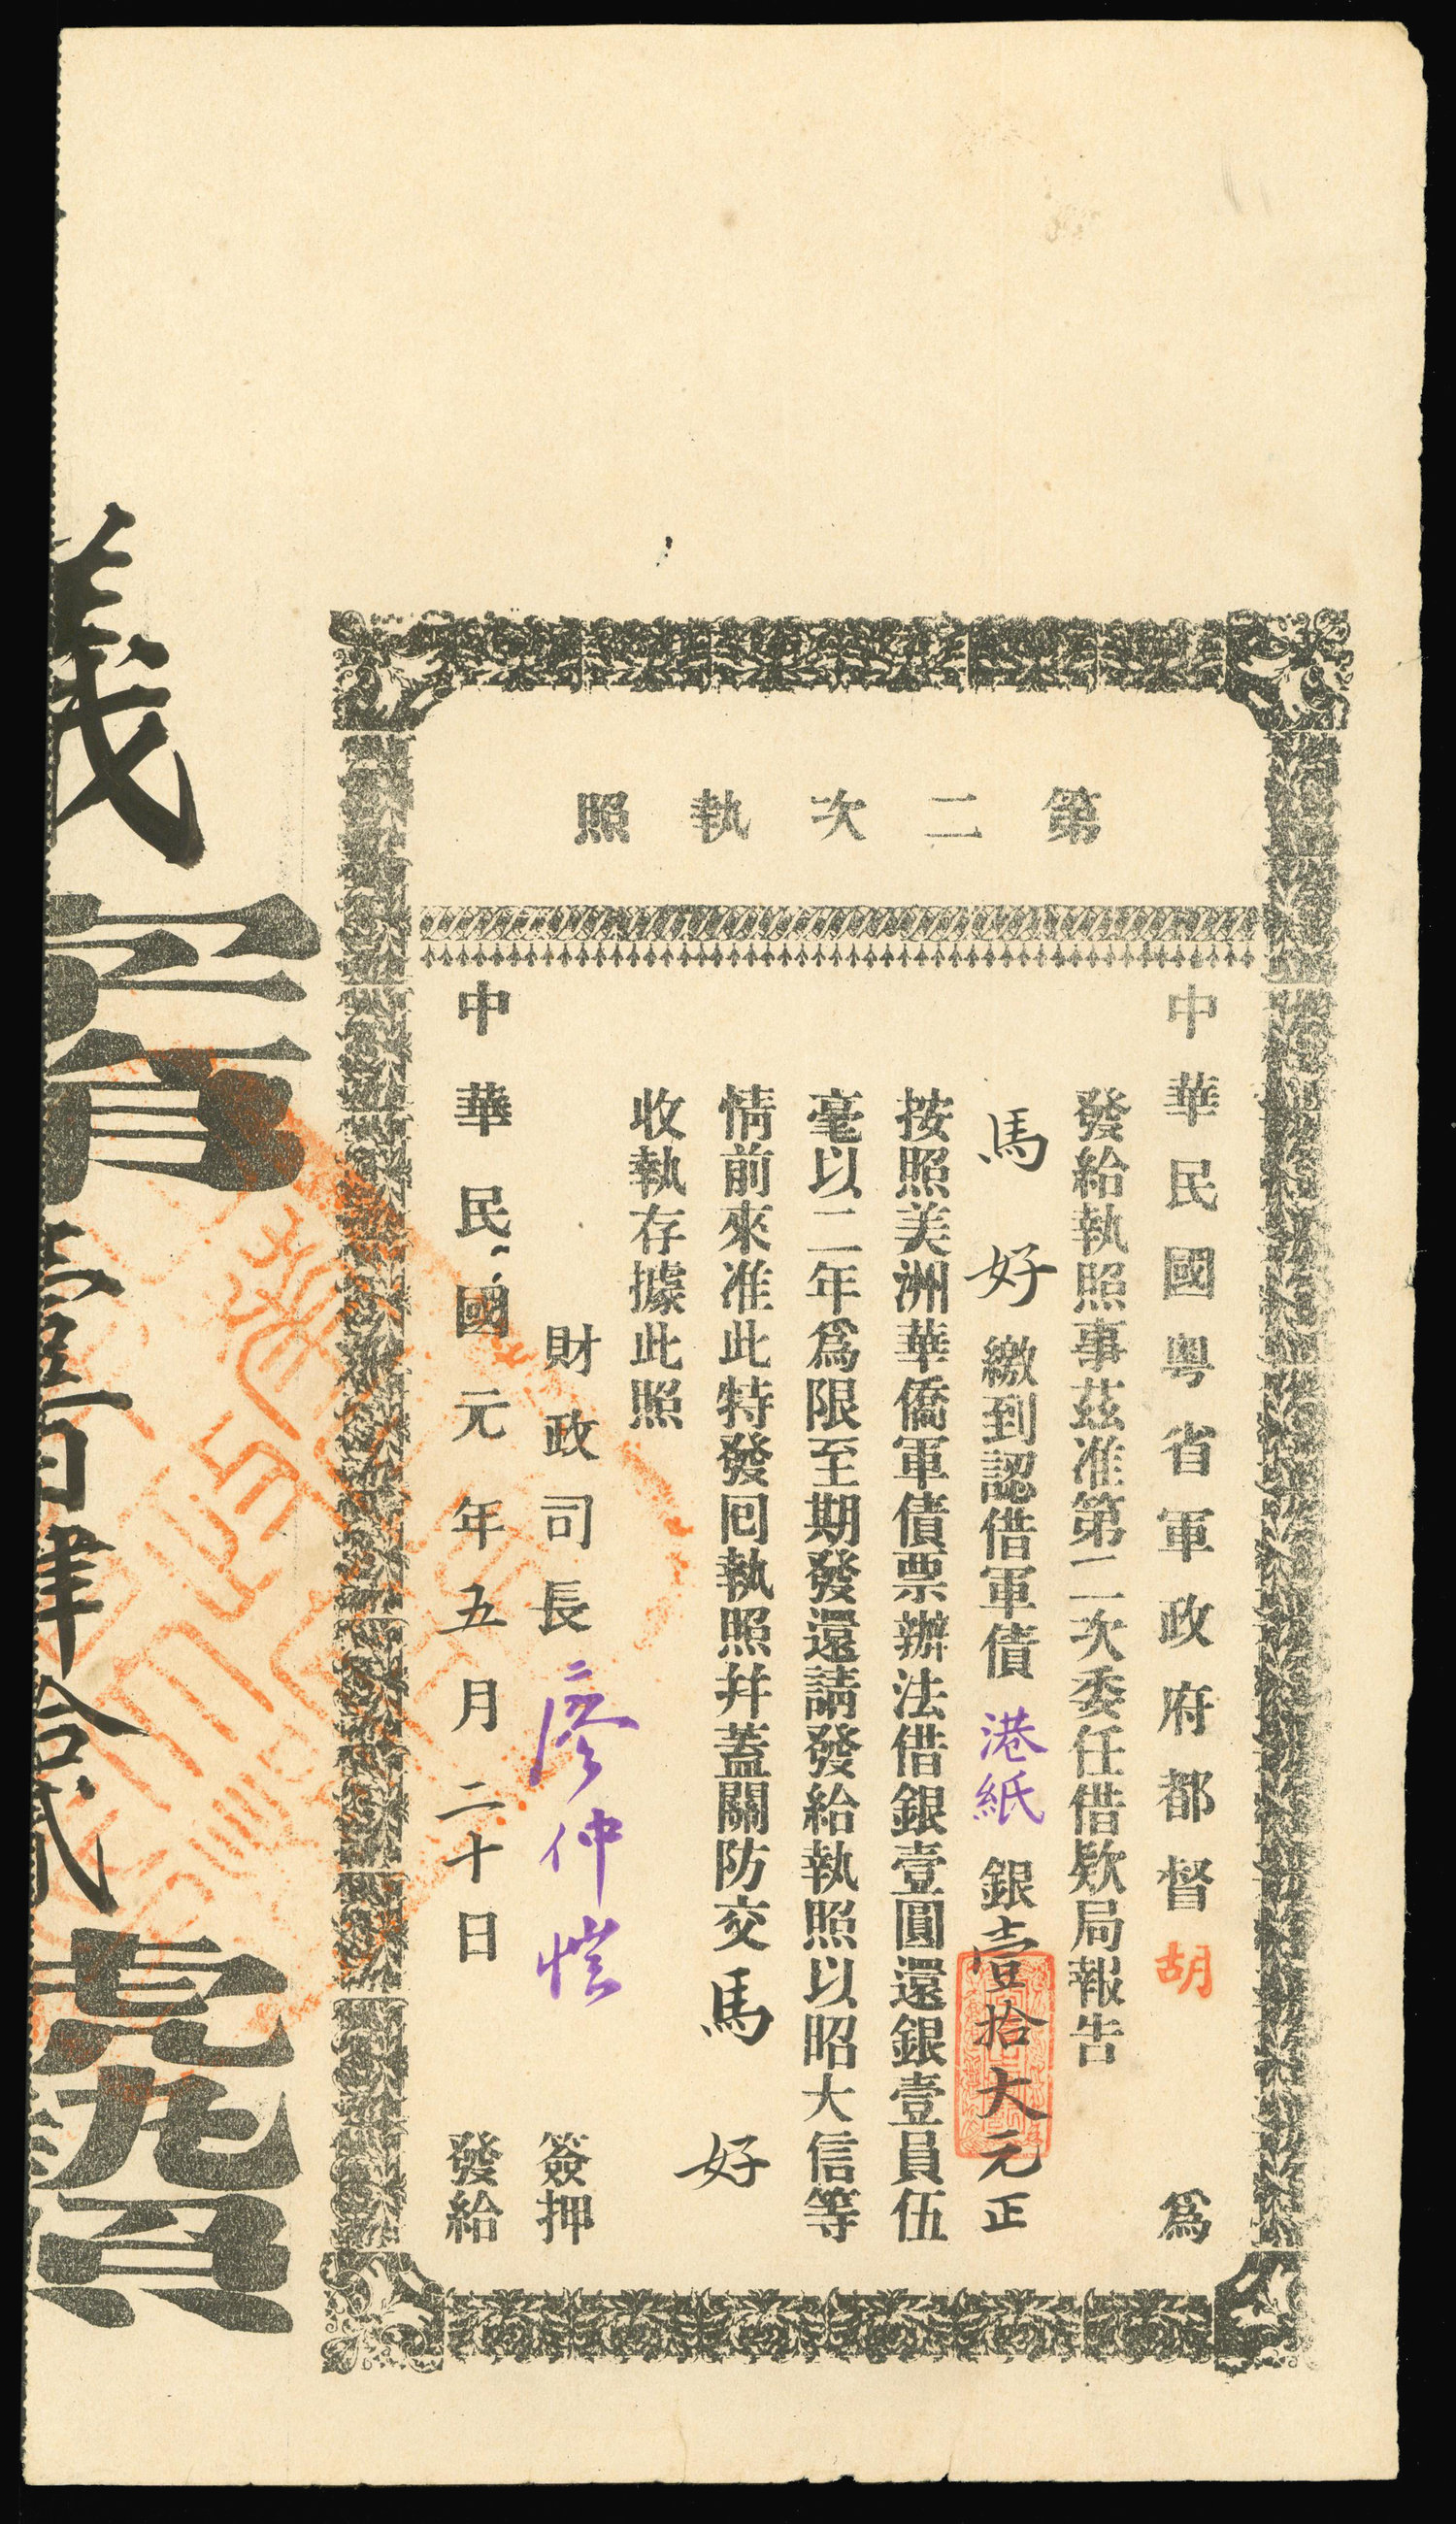 第二次執照
中華民國粤省軍政府都督胡 爲
發給執照事茲准第二次委任借欵局報告
馬好繳到認借軍債港紙銀壹拾大元正
按照美洲華僑軍債票辦法借銀壹圓還銀壹員伍
毫以二年爲限至期發還請發給執照以昭大信等
情前來准此特發回執照并蓋關防交馬好
收執存據此照
財政司長廖仲愷 簽押
中華民國元年五月二十日 發給
義字第壹百肆拾貳號